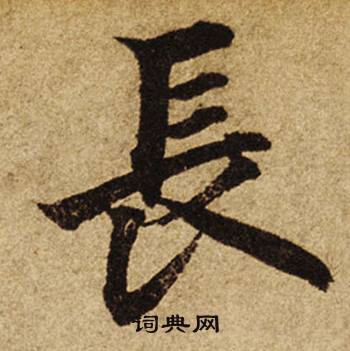 長
词典网